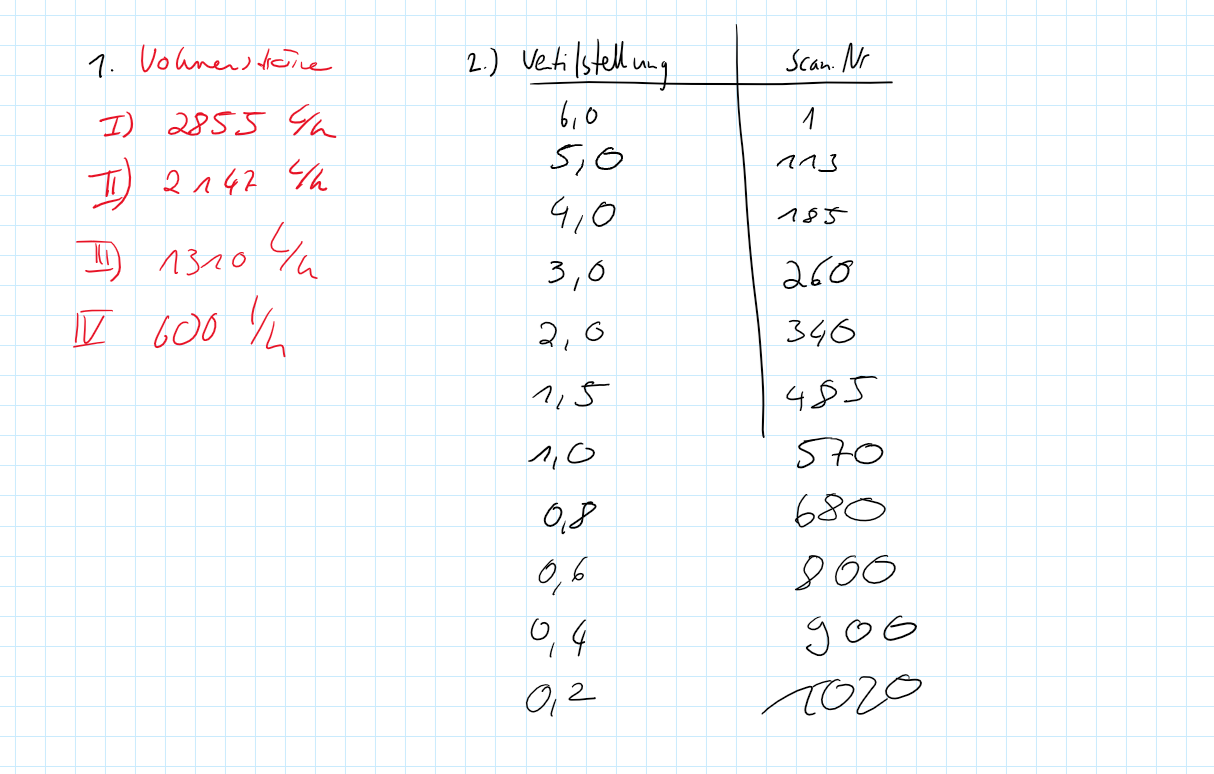 1. Volumenströme
I) 2855 L/h
II) 2147 L/h
III) 1310 L/h
IV 600 l/h
2.) Vetilstellung Scan. Nr
6,0 1
5,0 113
4,0 185
3,0 260
2,0 340
1,5 485
1,0 570
0,8 680
0,6 800
0,4 900
0,2 1020